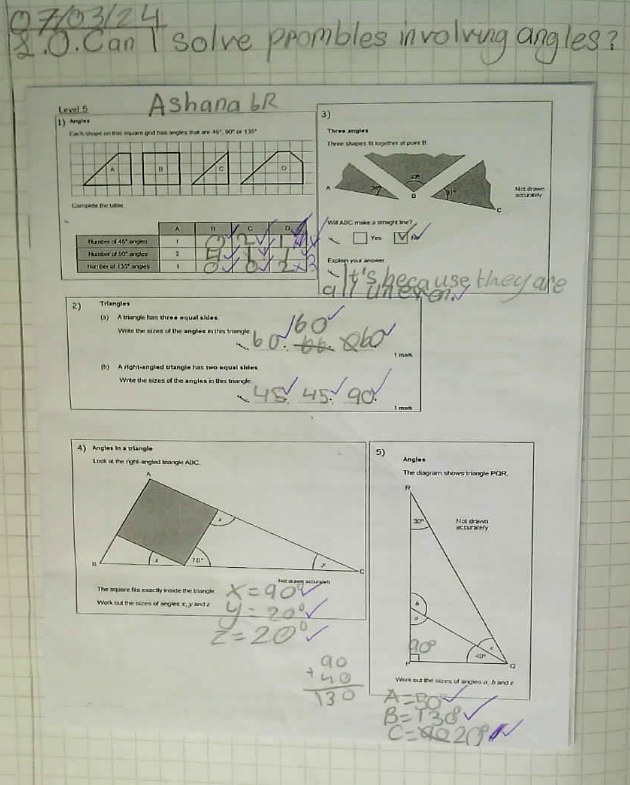 07/03/24
L.O. Can I solve prombles involving angles?
Level 5
Ashana 6R
1) Angles
Each shape on this square grid has angles that are 45°, 90° or 135°
A B C D
Complete the table.
A B C D
Number of 45° angles 1 0 2 1
Number of 90° angles 2 4 1 1
Number of 135° angles 1 0 0 2
3)
Three angles
Three shapes fit together at point B
A
B
C
Not drawn
accurately
Will ABC make a straight line?
Yes No
Explain your answer
It's because they are
all uneven.
2) Triangles
(a) A triangle has three equal sides.
Write the sizes of the angles in this triangle.
60. 60 60
1 mark
(b) A right-angled triangle has two equal sides
Write the sizes of the angles in this triangle.
45. 45. 90.
1 mark
4) Angles in a triangle
Look at the right-angled triangle ABC.
A
x
B z 70° y C
Not drawn accurately
The square fits exactly inside the triangle
Work out the sizes of angles x, y and z
x=90°
y=20°
z=20°
90
+40
130
5)
Angles
The diagram shows triangle PQR.
R
30°
Not drawn
accurately
b
a
c
90°
40°
P Q
Work out the sizes of angles a, b and c
A=50°
B=130°
C=20°